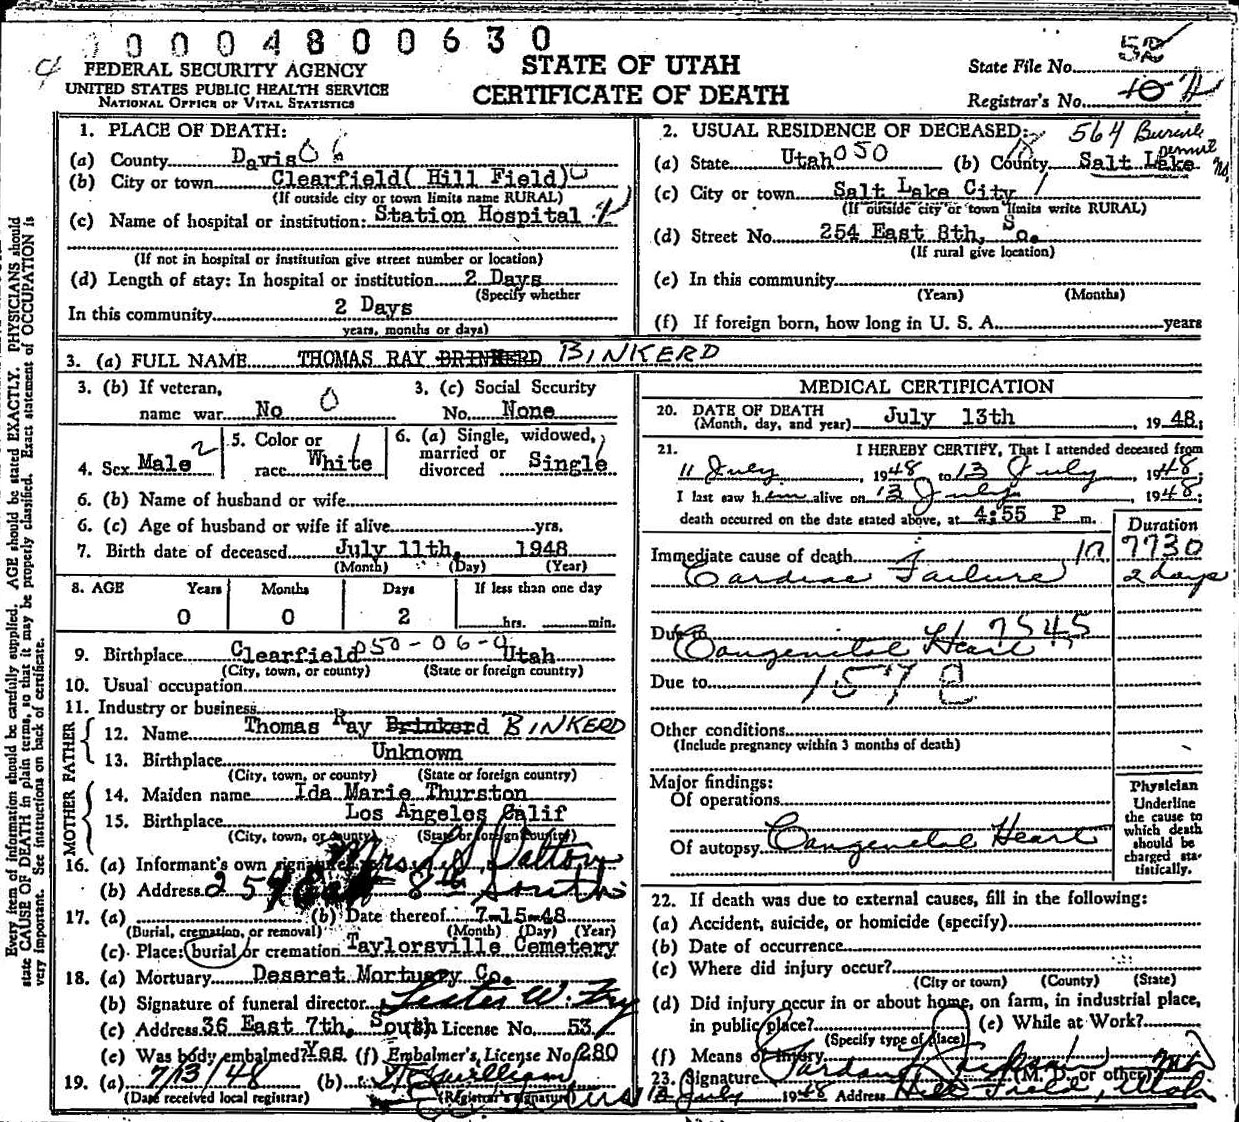 0 0 0 4 8 0 0 6 3 0
FEDERAL SECURITY AGENCY
UNITED STATES PUBLIC HEALTH SERVICE
NATIONAL OFFICE OF VITAL STATISTICS
STATE OF UTAH
CERTIFICATE OF DEATH
State File No. 52
Registrar's No.
1. PLACE OF DEATH:
(a) County Davis
(b) City or town Clearfield( Hill Field)
(If outside city or town limits name RURAL)
(c) Name of hospital or institution: Station Hospital
(If not in hospital or institution give street number or location)
(d) Length of stay: In hospital or institution 2 Days
(Specify whether
In this community 2 Days
years, months or days)
2. USUAL RESIDENCE OF DECEASED: 564 Burial permit No.
(a) State Utah 050 (b) County Salt Lake
(c) City or town Salt Lake City
(If outside city or town limits write RURAL)
(d) Street No. 254 East 8th, So.
(If rural give location)
(e) In this community
(Years) (Months)
(f) If foreign born, how long in U. S. A. years
3. (a) FULL NAME THOMAS RAY BRINKERD BINKERD
3. (b) If veteran,
name war No 0
3. (c) Social Security
No. None
4. Sex Male 2
5. Color or
race White
6. (a) Single, widowed,
married or
divorced Single
6. (b) Name of husband or wife
6. (c) Age of husband or wife if alive yrs.
7. Birth date of deceased July 11th, 1948
(Month) (Day) (Year)
8. AGE Years Months Days If less than one day
0 0 2 hrs. min.
9. Birthplace Clearfield 050-06-0 Utah
(City, town, or county) (State or foreign country)
10. Usual occupation
11. Industry or business
FATHER
12. Name Thomas Ray Brinkerd BINKERD
13. Birthplace Unknown
(City, town, or county) (State or foreign country)
MOTHER
14. Maiden name Ida Marie Thurston
15. Birthplace Los Angeles Calif
(City, town, or county) (State or foreign country)
16. (a) Informant's own signature Mrs Dalton
(b) Address 254 East 8th South
17. (a) (b) Date thereof 7-15-48
(Burial, cremation, or removal) (Month) (Day) (Year)
(c) Place: burial or cremation Taylorsville Cemetery
18. (a) Mortuary Deseret Mortuary Co.
(b) Signature of funeral director Lester W. Fry
(c) Address 36 East 7th, South License No. 53
(e) Was body embalmed? Yes (f) Embalmer's License No. 280
19. (a) 7/13/48 (b)
(Date received local registrar) (Registrar's signature)
MEDICAL CERTIFICATION
20. DATE OF DEATH
(Month, day, and year) July 13th, 1948;
21. I HEREBY CERTIFY, That I attended deceased from
11 July, 1948 to 13 July, 1948.
I last saw him alive on 13 July, 1948;
death occurred on the date stated above, at 4:55 P m.
Duration
Immediate cause of death 7730
Cardiac Failure 2 days
Due to 7545
Congenital Heart
Due to 157
Other conditions
(Include pregnancy within 3 months of death)
Major findings:
Of operations
Of autopsy Congenital Heart
Physician
Underline
the cause to
which death
should be
charged sta-
tistically.
22. If death was due to external causes, fill in the following:
(a) Accident, suicide, or homicide (specify)
(b) Date of occurrence
(c) Where did injury occur?
(City or town) (County) (State)
(d) Did injury occur in or about home, on farm, in industrial place,
in public place? (e) While at Work?
(Specify type of place)
(f) Means of injury
23. Signature (M. D. or other) MD
13 July 1948 Address Hill Field, Utah
Every item of information should be carefully supplied. AGE should be stated EXACTLY. PHYSICIANS should
state CAUSE OF DEATH in plain terms, so that it may be properly classified. Exact statement of OCCUPATION is
very important. See instructions on back of certificate.